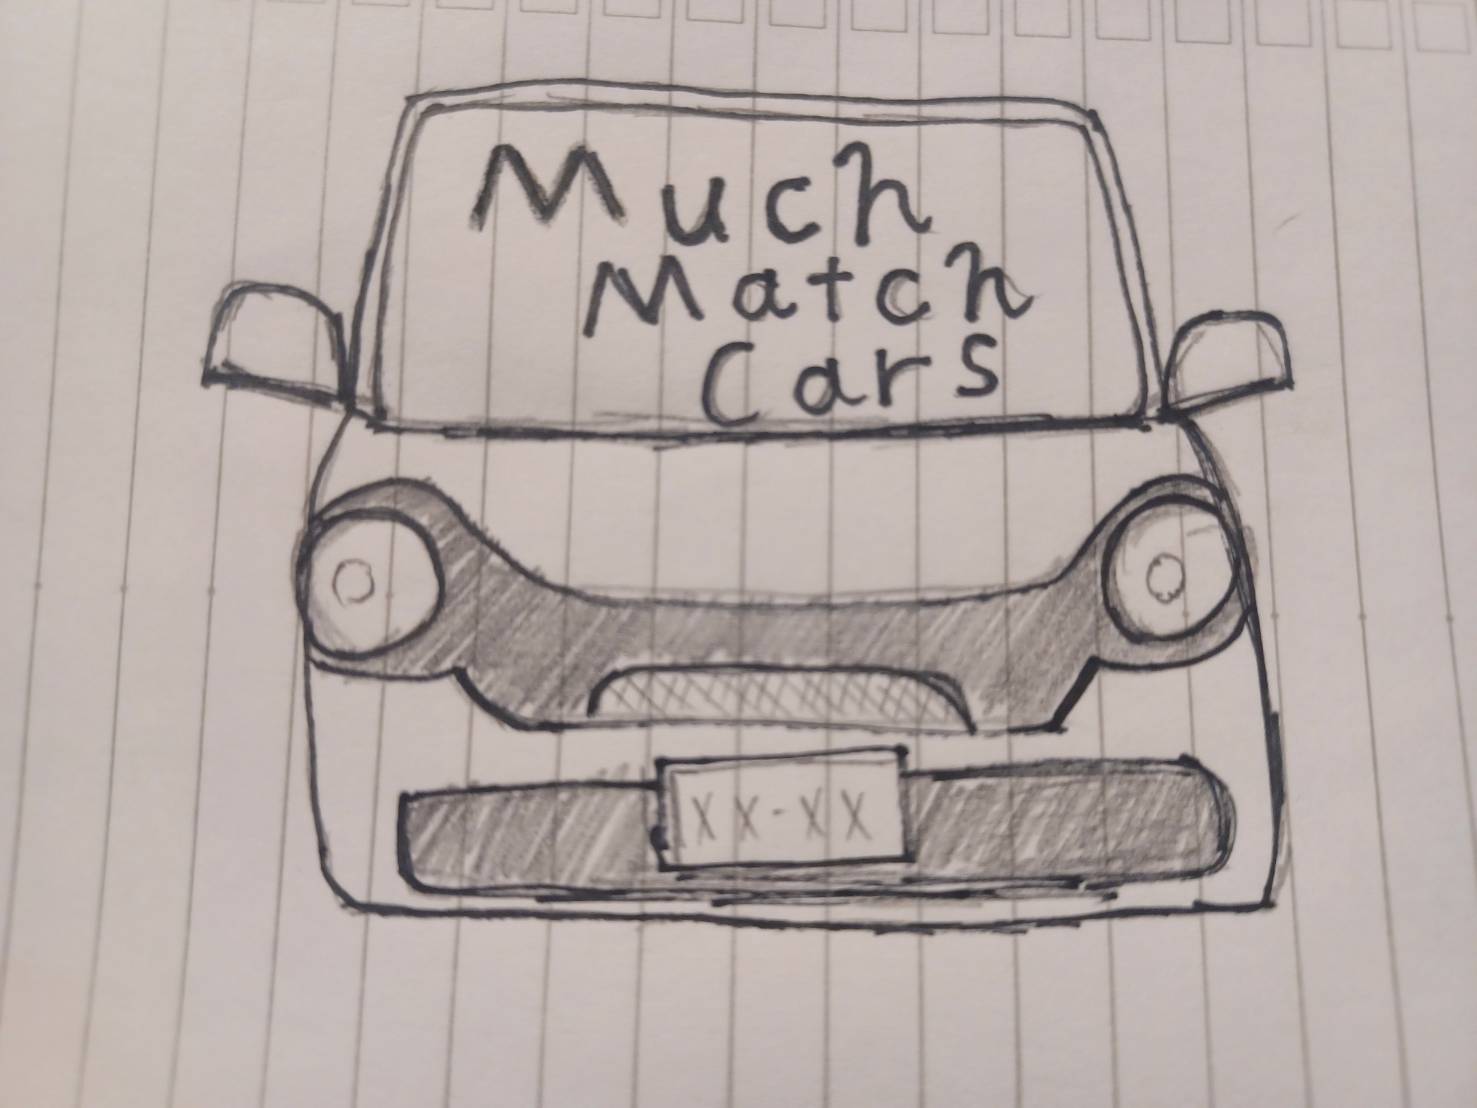 Much
Match
Cars
XX-XX